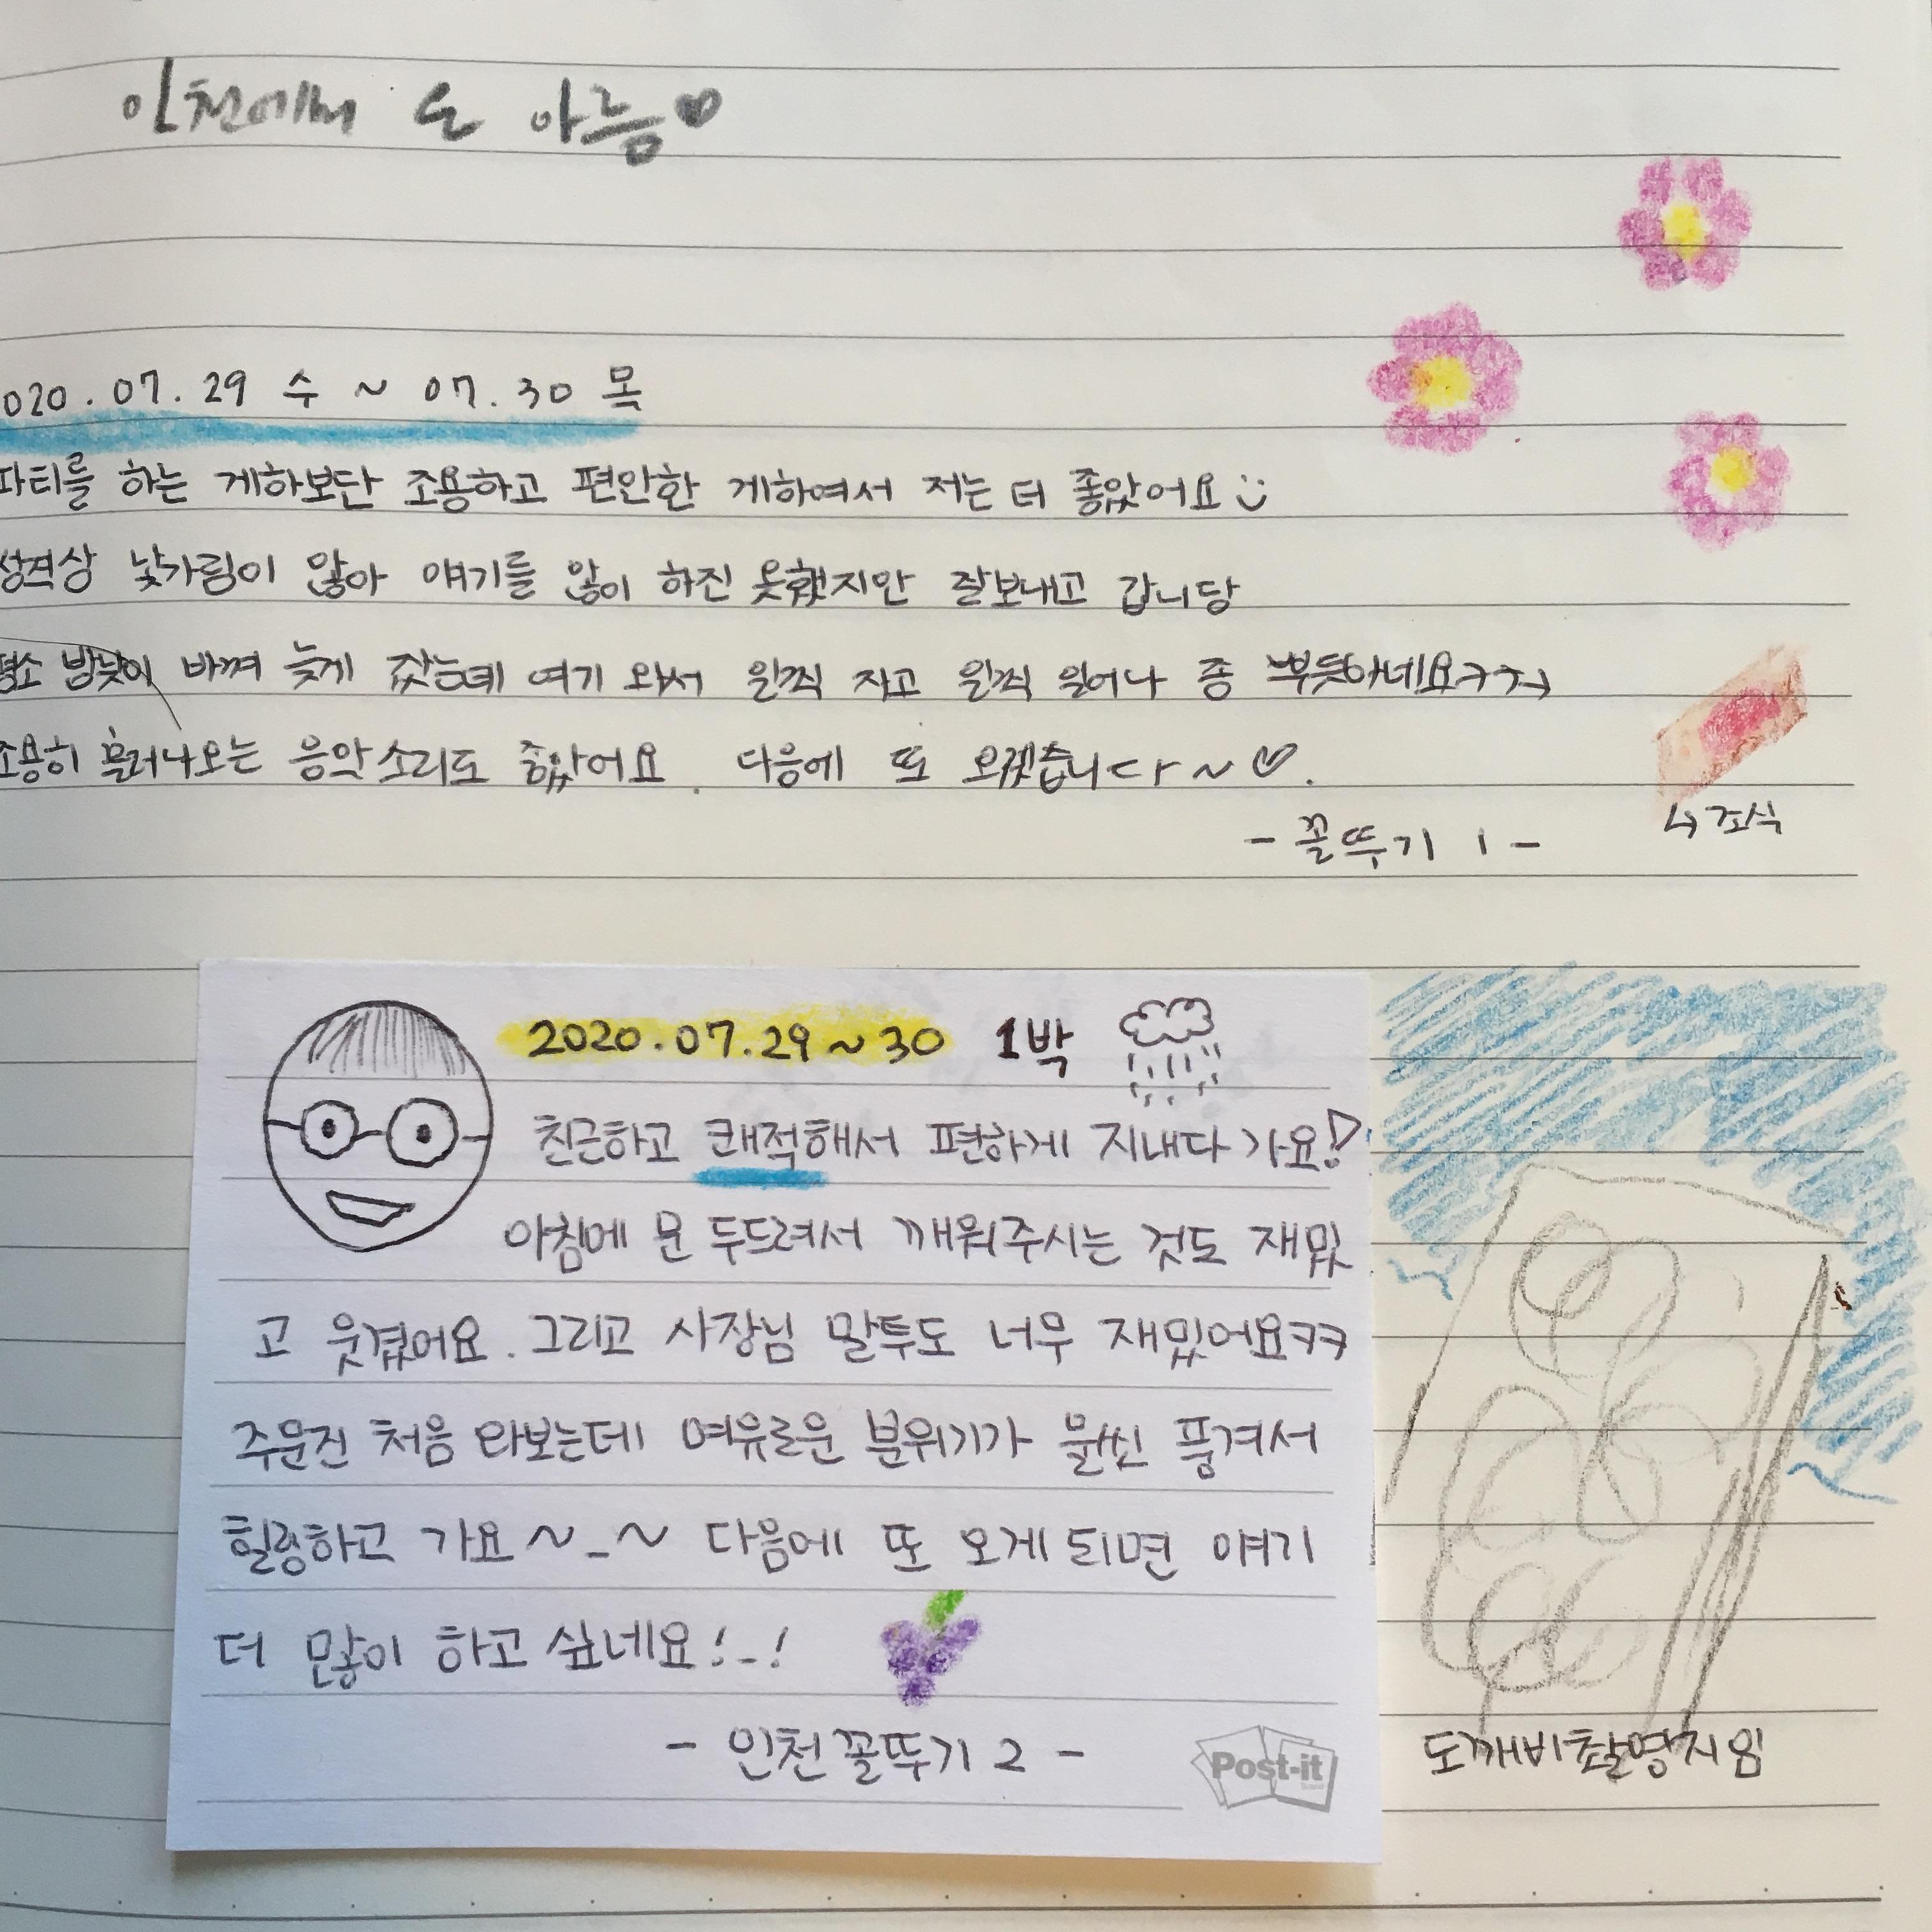 인천에서 온 아름♡
020.07.29 수 ~ 07.30 목
파티를 하는 게하보단 조용하고 편안한 게하여서 저는 더 좋았어요
성격상 낯가림이 많아 얘기를 많이 하진 못했지만 잘보내고 갑니당
평소 밤낮이 바껴 늦게 잤는데 여기 와서 일찍 자고 일찍 일어나 좀 뿌듯하네요ㅋㅋㅋ
조용히 흘러나오는 음악소리도 좋았어요. 다음에 또 오겠습니다~♡.
↳조식
- 꼴뚜기 1 -
2020.07.29~30 1박
친근하고 쾌적해서 편하게 지내다 가요!
아침에 문 두드려서 깨워주시는 것도 재밌
고 웃겼어요. 그리고 사장님 말투도 너무 재밌어요ㅋㅋ
주문진 처음 와보는데 여유로운 분위기가 물씬 풍겨서
힐링하고 가요~_~ 다음에 또 오게 되면 얘기
더 많이 하고 싶네요!_!
- 인천꼴뚜기 2 -
Post-it
도깨비촬영지임